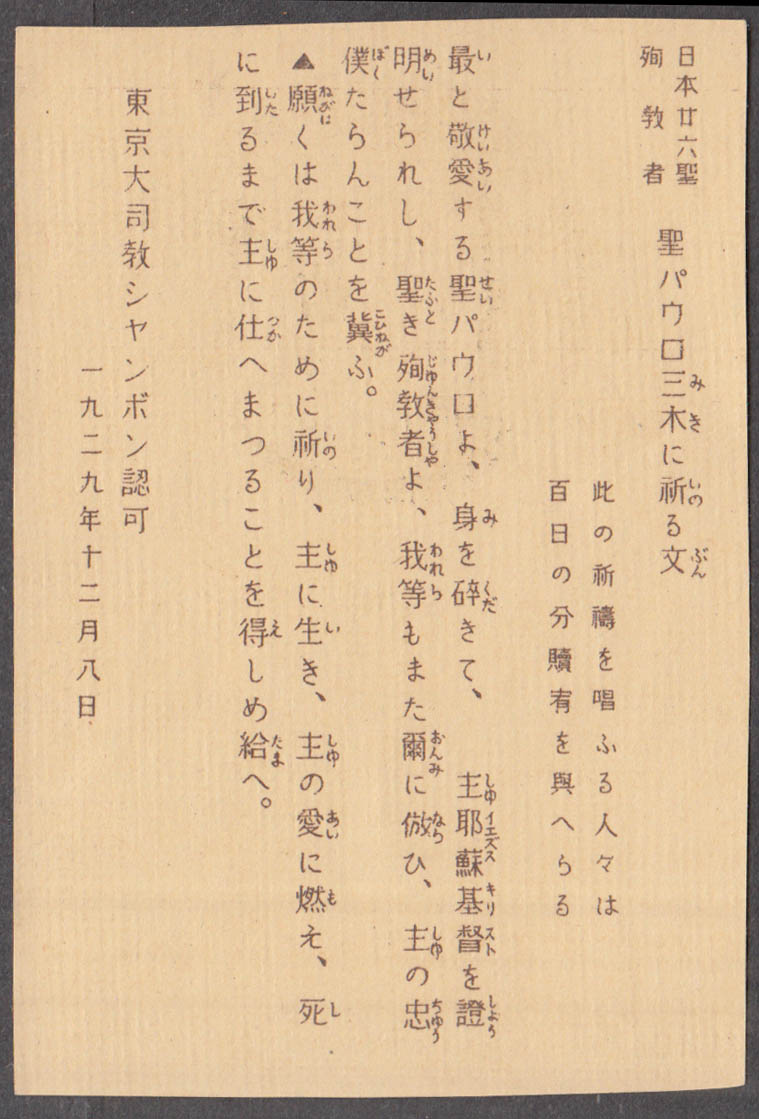 日本廿六聖
殉教者
聖パウロ三木に祈る文
此の祈禱を唱ふる人々は
百日の分贖宥を與へらる
最と敬愛する聖パウロよ、身を碎きて、 主耶蘇基督を證
明せられし、聖き殉教者よ、我等もまた爾に倣ひ、主の忠
僕たらんことを冀ふ。
▲願くは我等のために祈り、主に生き、主の愛に燃え、死
に到るまで主に仕へまつることを得しめ給へ。
東京大司教シャンボン認可
一九二九年十二月八日